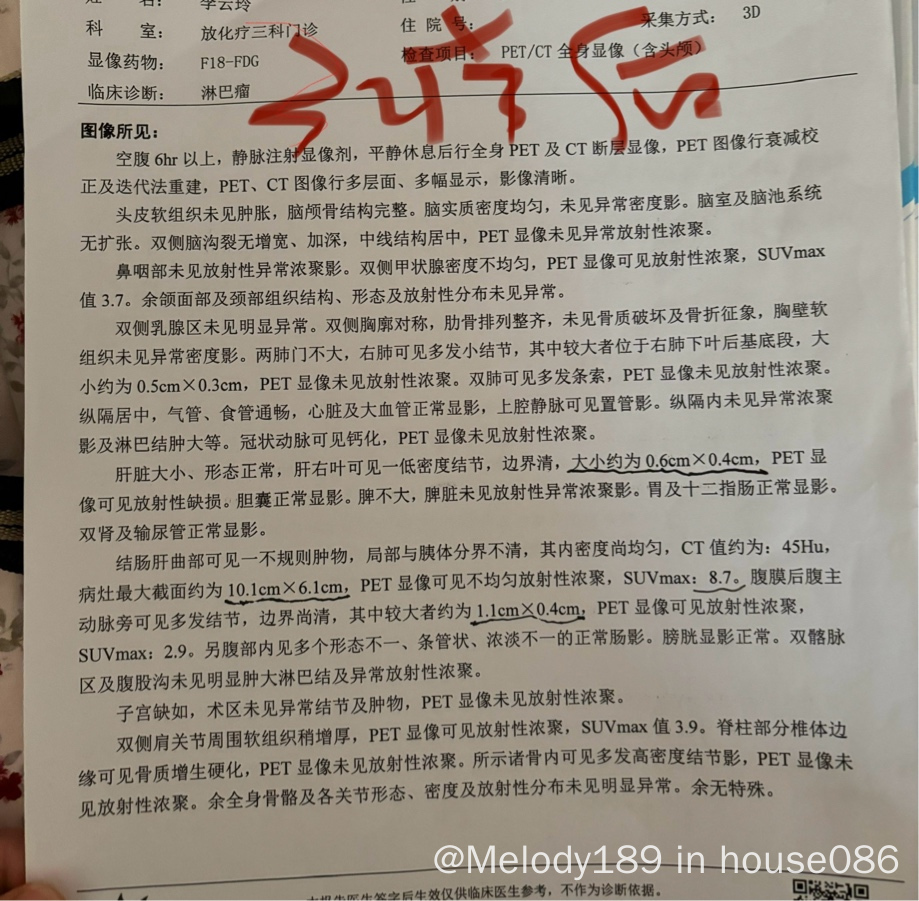 姓 名： 李云玲
科 室： 放化疗三科门诊 住 院 号： 采集方式： 3D
显像药物： F18-FDG 检查项目： PET/CT 全身显像（含头颅）
临床诊断： 淋巴瘤
后
图像所见：
空腹 6hr 以上，静脉注射显像剂，平静休息后行全身 PET 及 CT 断层显像，PET 图像行衰减校
正及迭代法重建，PET、CT 图像行多层面、多幅显示，影像清晰。
头皮软组织未见肿胀，脑颅骨结构完整。脑实质密度均匀，未见异常密度影。脑室及脑池系统
无扩张。双侧脑沟裂无增宽、加深，中线结构居中，PET 显像未见异常放射性浓聚。
鼻咽部未见放射性异常浓聚影。双侧甲状腺密度不均匀，PET 显像可见放射性浓聚，SUVmax
值 3.7。余颌面部及颈部组织结构、形态及放射性分布未见异常。
双侧乳腺区未见明显异常。双侧胸廓对称，肋骨排列整齐，未见骨质破坏及骨折征象，胸壁软
组织未见异常密度影。两肺门不大，右肺可见多发小结节，其中较大者位于右肺下叶后基底段，大
小约为 0.5cm×0.3cm，PET 显像未见放射性浓聚。双肺可见多发条索，PET 显像未见放射性浓聚。
纵隔居中，气管、食管通畅，心脏及大血管正常显影，上腔静脉可见置管影。纵隔内未见异常浓聚
影及淋巴结肿大等。冠状动脉可见钙化，PET 显像未见放射性浓聚。
肝脏大小、形态正常，肝右叶可见一低密度结节，边界清，大小约为 0.6cm×0.4cm，PET 显
像可见放射性缺损。胆囊正常显影。脾不大，脾脏未见放射性异常浓聚影。胃及十二指肠正常显影。
双肾及输尿管正常显影。
结肠肝曲部可见一不规则肿物，局部与胰体分界不清，其内密度尚均匀，CT 值约为：45Hu，
病灶最大截面约为 10.1cm×6.1cm，PET 显像可见不均匀放射性浓聚，SUVmax：8.7。腹膜后腹主
动脉旁可见多发结节，边界尚清，其中较大者约为 1.1cm×0.4cm，PET 显像可见放射性浓聚，
SUVmax：2.9。另腹部内见多个形态不一、条管状、浓淡不一的正常肠影。膀胱显影正常。双髂脉
区及腹股沟未见明显肿大淋巴结及异常放射性浓聚。
子宫缺如，术区未见异常结节及肿物，PET 显像未见放射性浓聚。
双侧肩关节周围软组织稍增厚，PET 显像可见放射性浓聚，SUVmax 值 3.9。脊柱部分椎体边
缘可见骨质增生硬化，PET 显像未见放射性浓聚。所示诸骨内可见多发高密度结节影，PET 显像未
见放射性浓聚。余全身骨骼及各关节形态、密度及放射性分布未见明显异常。余无特殊。
@Melody189 in house086
本报告医生签字后生效仅供临床医生参考，不作为诊断依据。